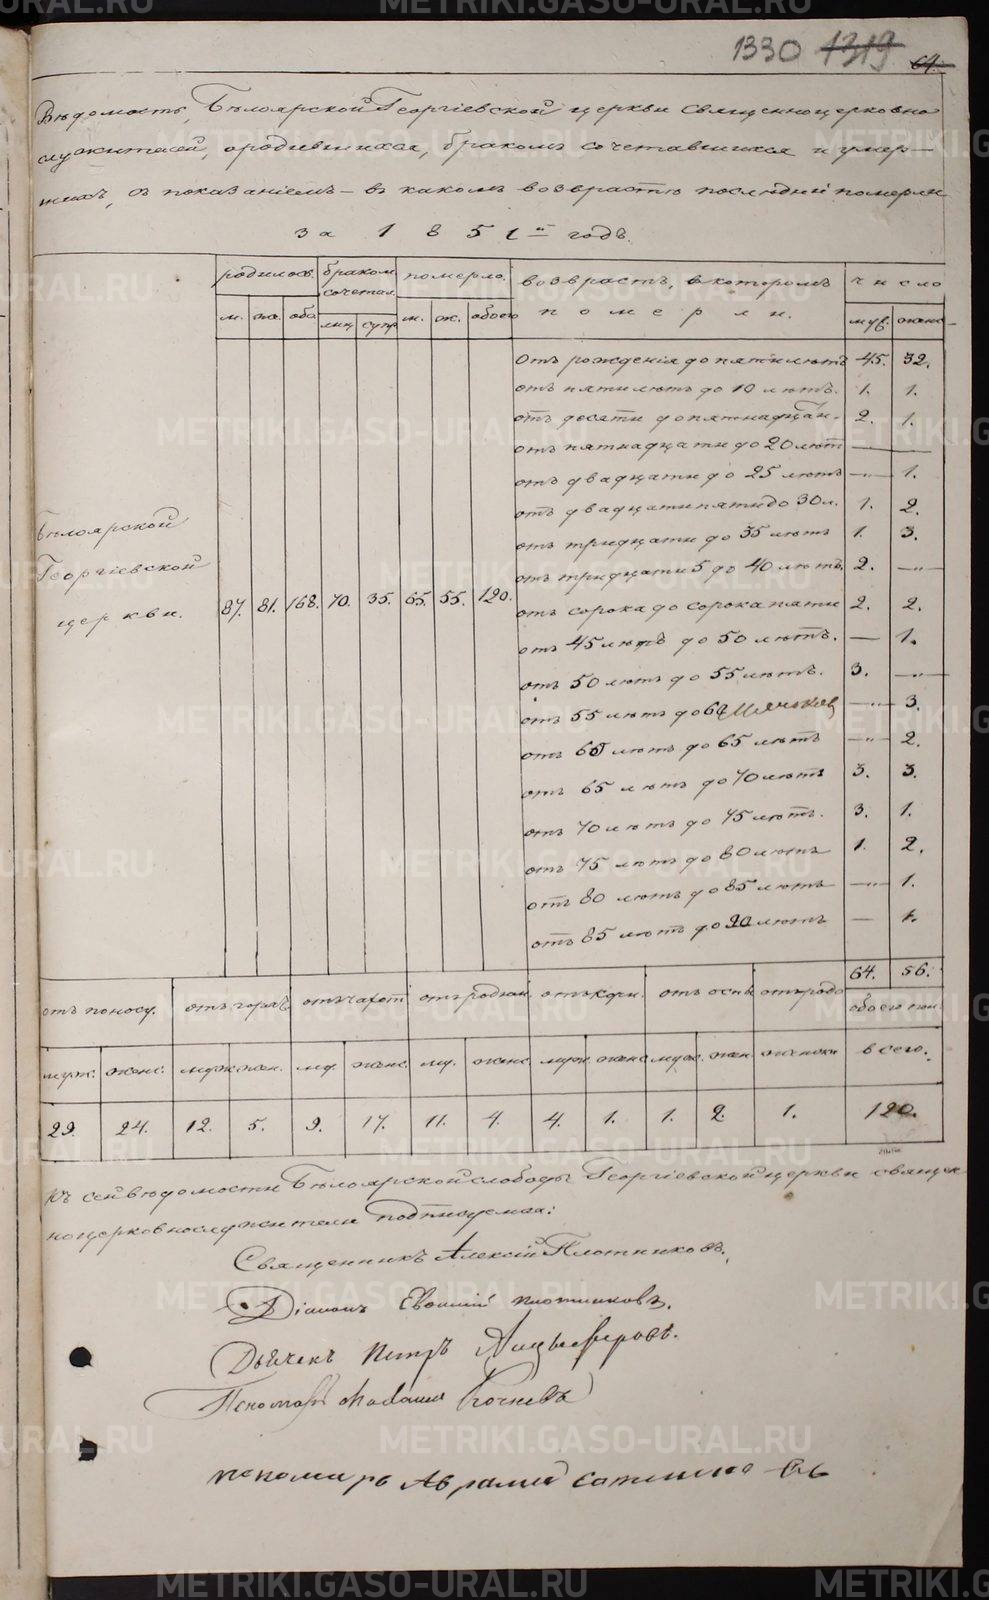 1330 1319 64.
Вѣдомость, Бѣлоярской Георгіевской церкви священноцерковно
служителей, ородившихся, бракомъ сочетавшихся и умер-
шихъ, съ показаніемъ – въ какомъ возврастѣ послѣдніи померли
за 1851й годъ.
родилось. браком. сочетал. померло. возврастъ, вкоторомъ померли. число
м. же. обо. лиц супр м. ж. обоего муж. женс.
Отъ рожденія до пятилѣтъ 45. 32.
отъ пятилѣтъ до 10 лѣтъ. 1. 1.
отъ десяти до пятнадцати. 2. 1.
отъ пятнадцати до 20 лѣтъ — —
отъ двадцати до 25 лѣтъ —"— 1.
отъ двадцатипяти до 30 л. 1. 2.
отъ тридцати до 35 лѣтъ 1. 3.
отъ тридцати 5 до 40 лѣтъ. 2. —"—
отъ сорока до сорокапяти 2. 2.
отъ 45 лѣтъ до 50 лѣтъ. — 1.
отъ 50 лѣтъ до 55 лѣтъ. 3. —"—
отъ 55 лѣтъ до 60 —"— 3.
отъ 60 лѣтъ до 65 лѣтъ —"— 2.
отъ 65 лѣтъ до 70 лѣтъ 3. 3.
отъ 70 лѣтъ до 75 лѣтъ. 3. 1.
отъ 75 лѣтъ до 80 лѣтъ 1. 2.
отъ 80 лѣтъ до 85 лѣтъ —"— 1.
отъ 85 лѣтъ до 90 лѣтъ — 1.
Бѣлоярской
Георгіевской
церкви. 87. 81. 168. 70. 35. 65. 55. 120.
64. 56.
отъ поносу. отъ горяч. отъ чахот отъ родим. отъ кори. отъ оспы отъ родо обоего пол
муж. женс. муж жен. му. женс. му. женс. муж. женс муж. жен. женски всего.
29. 24. 12. 5. 9. 17. 11. 4. 4. 1. 1. 2. 1. 120.
Къ сей вѣдомости Бѣлоярской слободы Георгіевской церкви священ
ноцерковнослужители подписуемся:
Священникъ Алексій Плотниковъ.
Діаконъ Евѳимій Плотниковъ.
Дьячекъ Петръ
Пономарь Кочневъ
пономарь Аврамій
METRIKI.GASO-URAL.RU